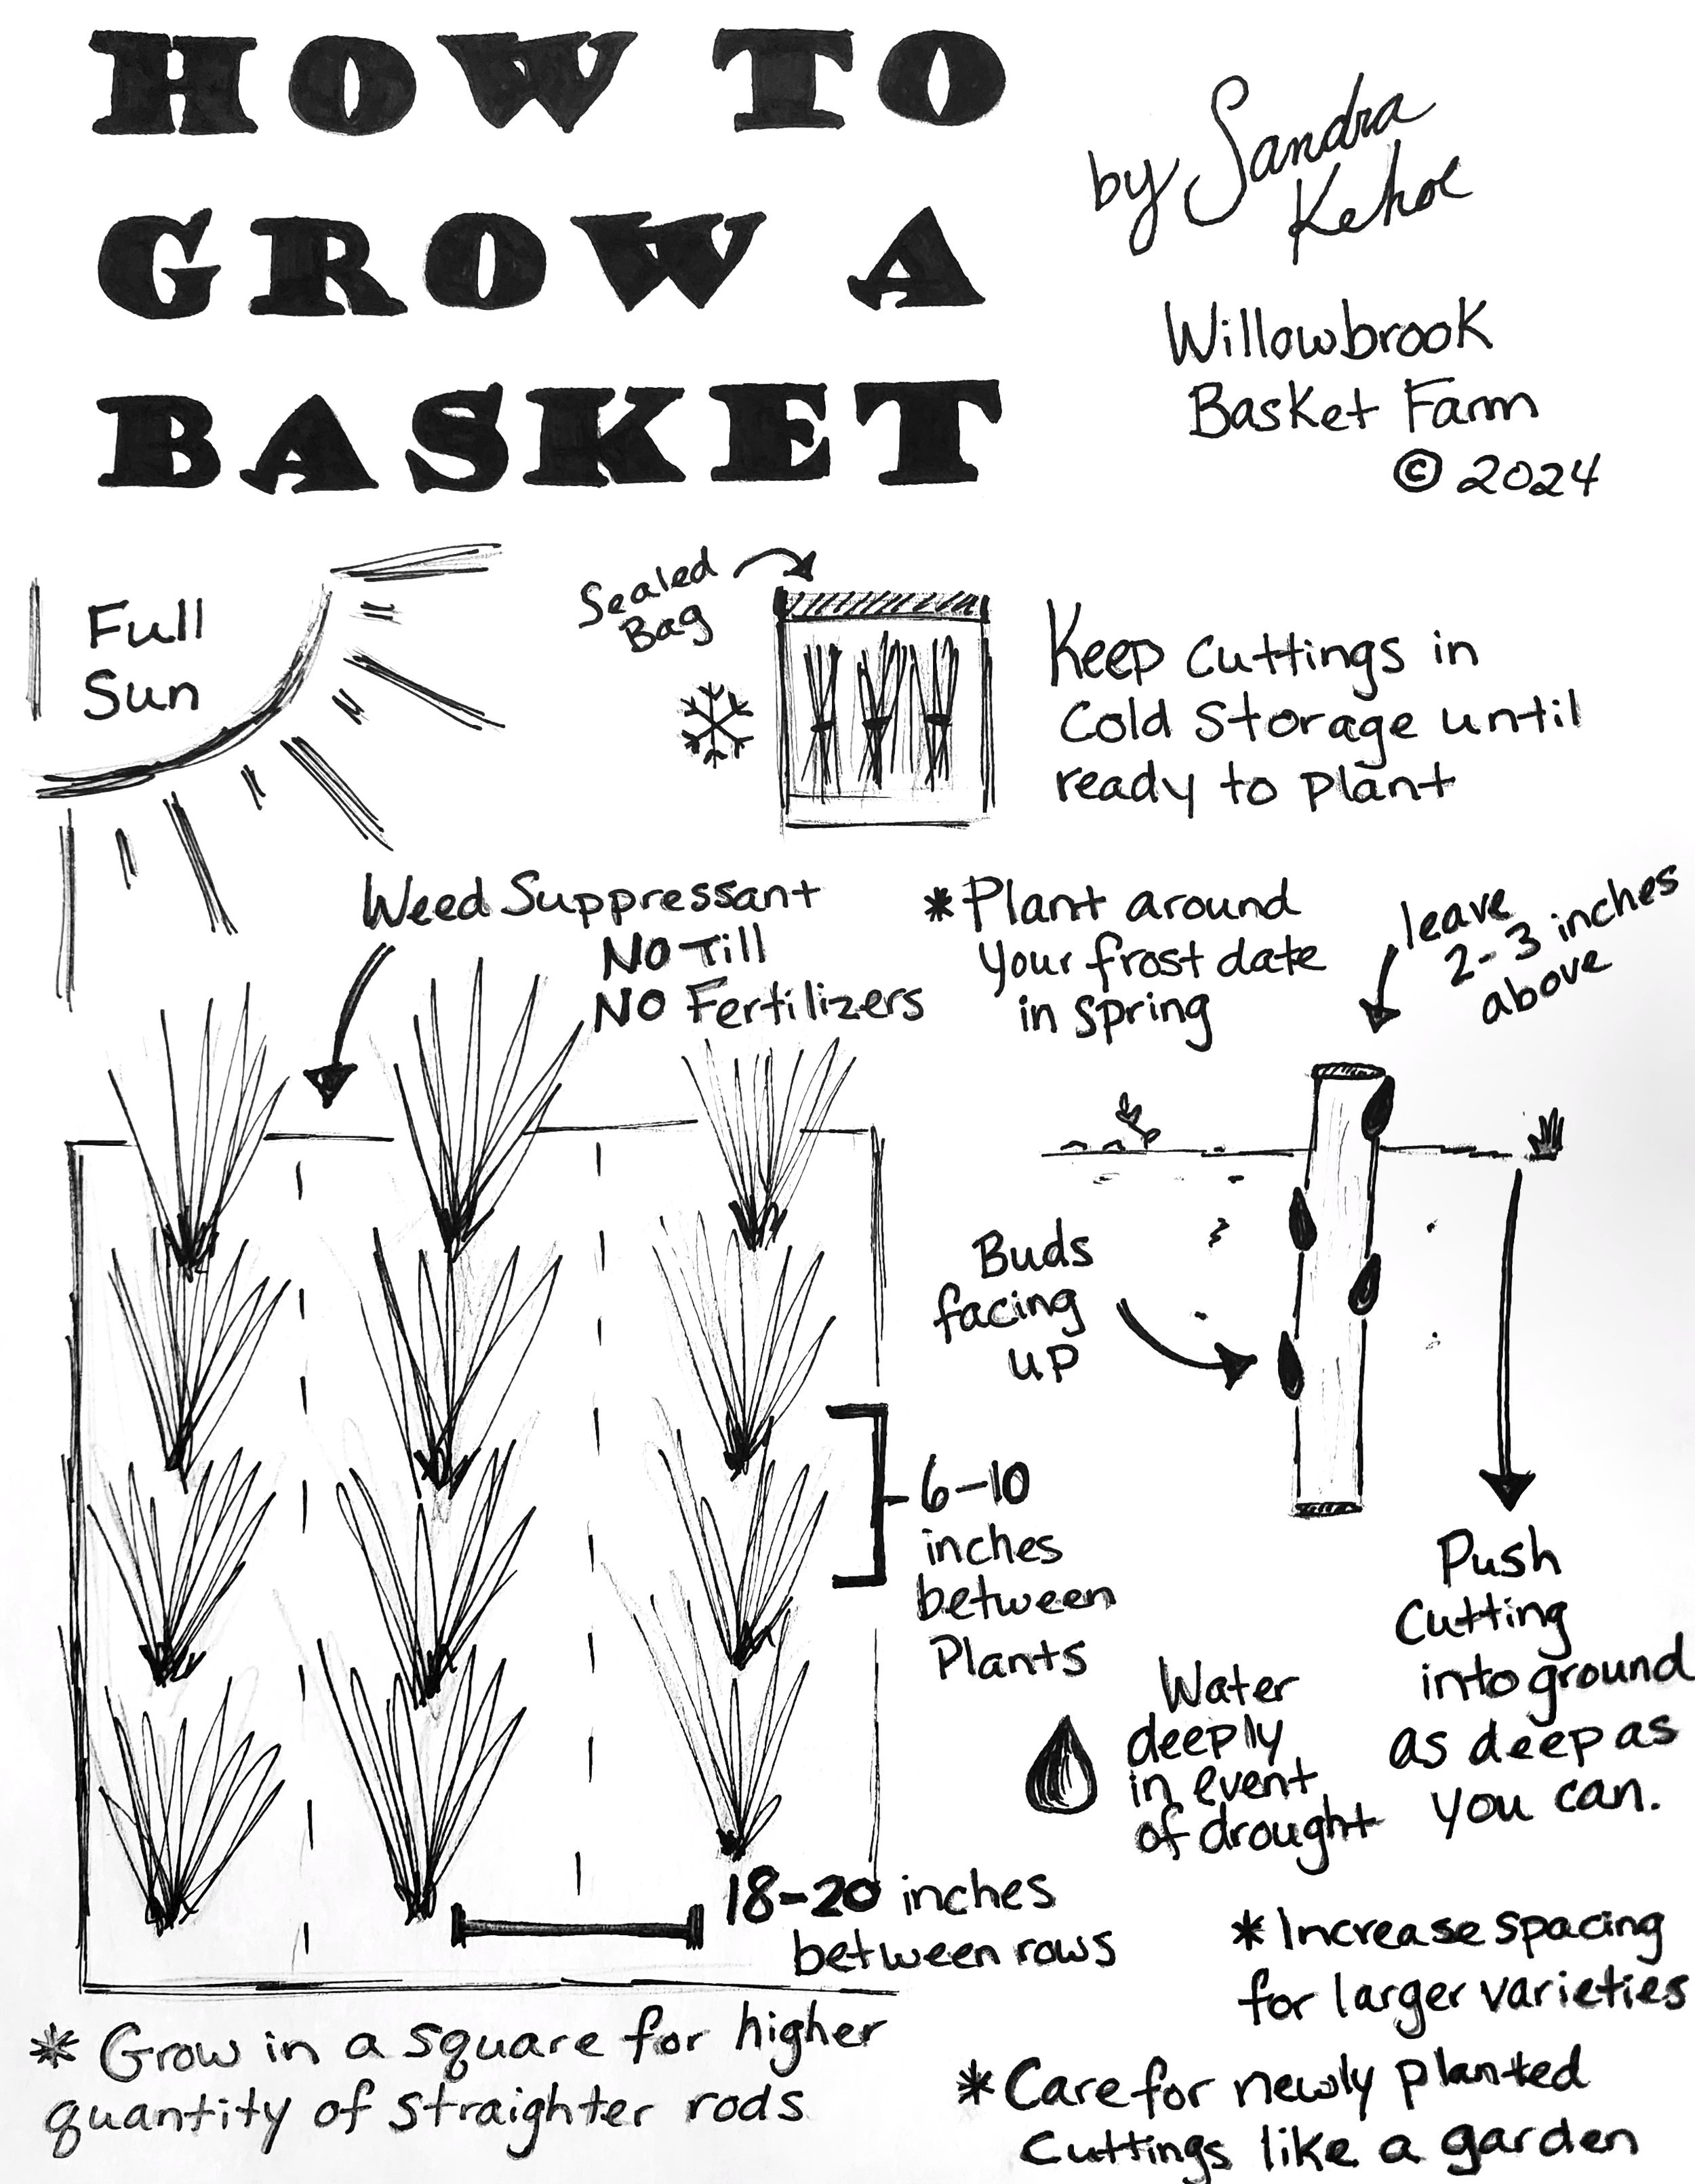 HOW TO
GROW A
BASKET
by Sandra
Kehoe
Willowbrook
Basket Farm
© 2024
Full
Sun
Sealed
Bag
Keep cuttings in
cold storage until
ready to plant
Weed Suppressant
NO Till
NO Fertilizers
* Plant around
your frost date
in spring
leave
2-3 inches
above
Buds
facing
up
6-10
inches
between
Plants
Push
Cutting
into ground
as deep as
you can.
Water
deeply
in event
of drought
18-20 inches
between rows
* Increase spacing
for larger varieties
* Grow in a square for higher
quantity of straighter rods
* Care for newly planted
cuttings like a garden